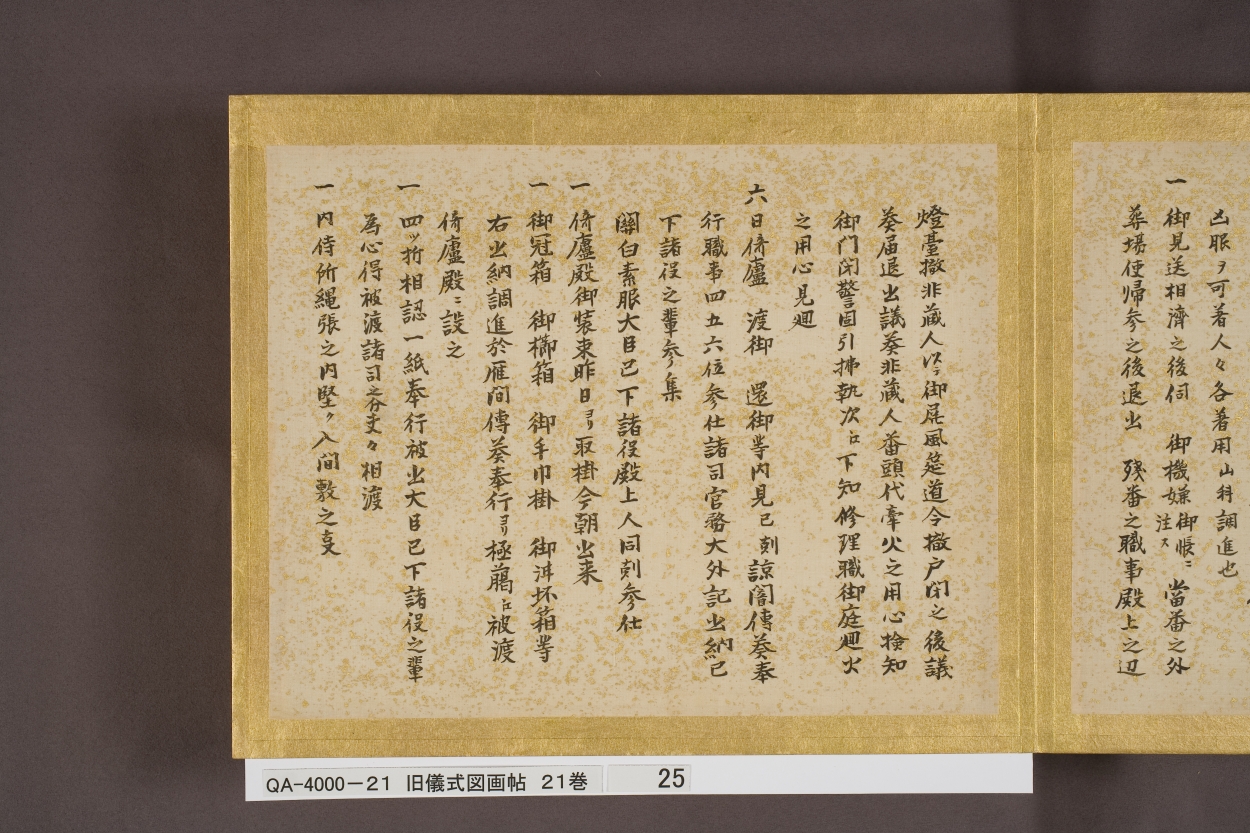 凶服ヲ可着人々各著用山科調進也
一 御見送相済之後伺 御機嫌御帳ニ注ス 當番之外
葬場使帰参之後退出 残番之職事殿上之辺
燈臺撤非蔵人以テ御屏風筵道令撤戸閉之後議
奏届退出議奏非蔵人番頭代牽火之用心検知
御门閉警固引拂執次江下知修理職御庭廻火
之用心見廻
六日倚廬 渡御 還御等内見已刻諒闇傳奏奉
行職事四五六位参仕諸司官務大外記出納已
下諸役之輩参集
關白素服大臣已下諸役殿上人同刻参仕
一 倚廬殿御装束昨日ヨリ取掛今朝出来
一 御冠箱 御櫛箱 御手巾掛 御洋坏箱等
右出納調進於雁间傳奏奉行ヨリ極﨟江被渡
倚廬殿ニ設之
一 四ツ折相認一紙奉行被出大臣已下諸役之輩
為心得被渡諸司之分史々相渡
一 内侍所縄張之内堅ク入间敷之支
QA-4000-21 旧儀式図画帖 21巻 25